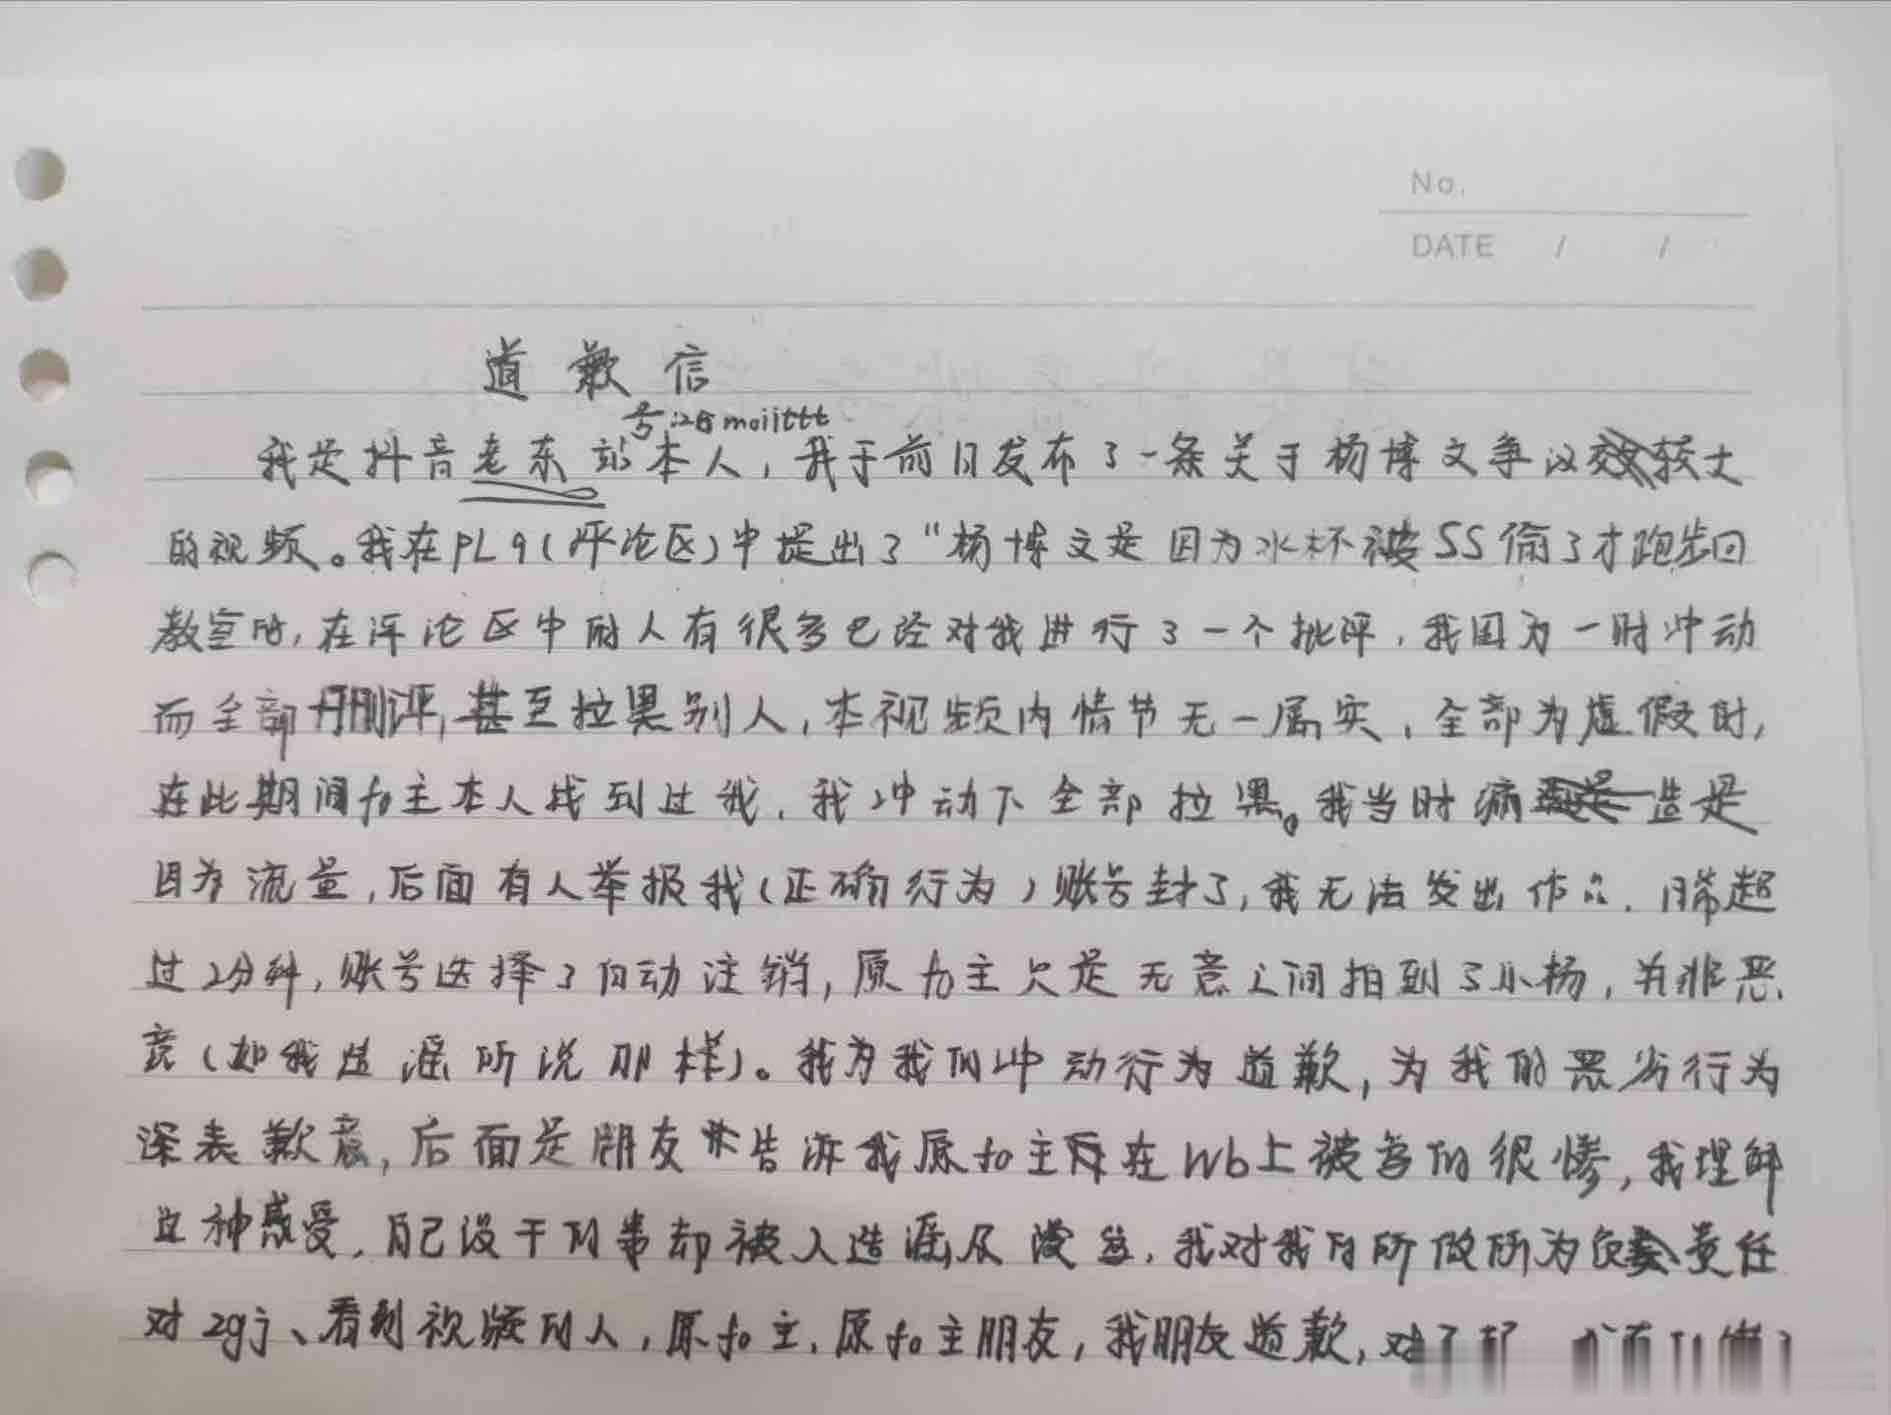 No.
DATE / /
道歉信
号:26moiittt
我是抖音老东站本人,我于前日发布了一条关于杨博文争议较大
的视频。我在PLq(评论区)中提出了“杨博文是因为水杯被SS偷了才跑步回
教室的,在评论区中的人有很多已经对我进行了一个批评,我因为一时冲动
而全部删评,甚至拉黑别人,本视频内情节无一属实,全部为虚假的,
在此期间fo主本人找到过我,我冲动下全部拉黑。我当时编造是
因为流量,后面有人举报我(正确行为)账号封了,我无法发出作品,时常超
过2分钟,账号选择了自动注销,原fo主只是无意之间拍到了小杨,并非恶
意(如我造谣所说那样)。我为我的冲动行为道歉,为我的恶劣行为
深表歉意,后面是朋友告诉我原fo主在wb上被骂的很惨,我理解
这种感受,自己没干的事却被人造谣及谩骂,我对我的所做所为负责任
对zgj、看到视频的人,原fo主,原fo主朋友,我朋友道歉,对